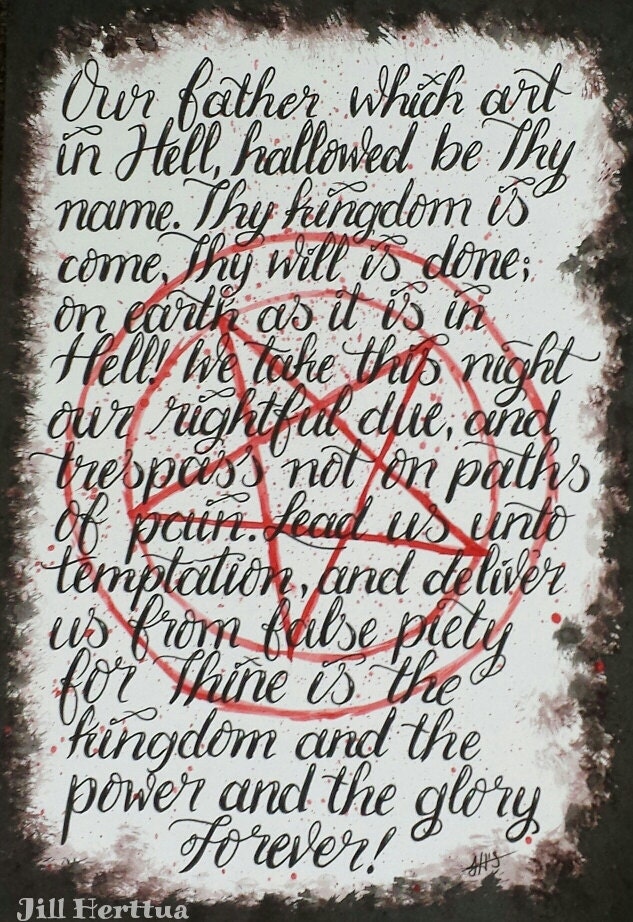 Our father which art
in Hell, hallowed be Thy
name. Thy kingdom is
come, Thy will is done;
on earth as it is in
Hell! We take this night
our rightful due, and
trespass not on paths
of pain. Lead us unto
temptation, and deliver
us from false piety
for Thine is the
kingdom and the
power and the glory
Forever!
Jill Herttua